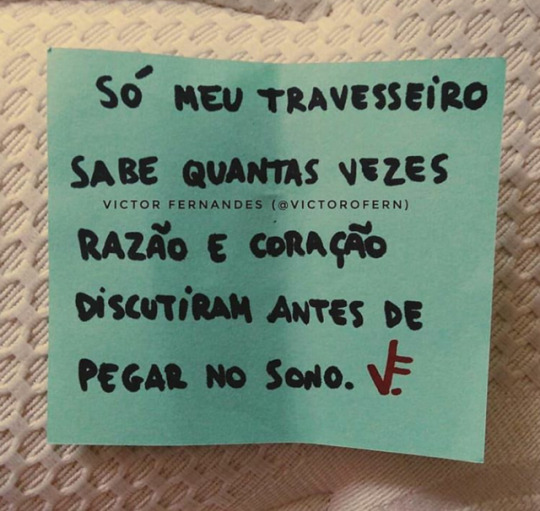 SÓ MEU TRAVESSEIRO
SABE QUANTAS VEZES
VICTOR FERNANDES (@VICTOROFERN)
RAZÃO E CORAÇÃO
DISCUTIRAM ANTES DE
PEGAR NO SONO. VF.